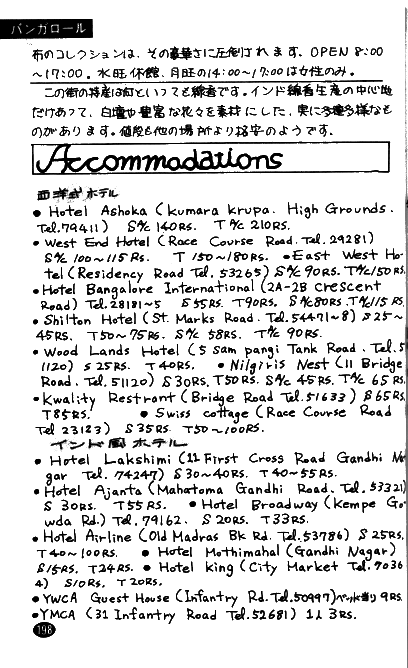 バンガロール
布のコレクションは、その豪華さに圧倒されます。OPEN 8:00
～17:00. 水旺休館、月旺の14:00～17:00は女性のみ.
この街の特産は何といっても絹者です。インド絹者生産の中心地
だけあって、白壇や豊富な花々を素材にした、実に多種多様なも
のがあります。値段も他の場所より格安のようです.
Accommodations
西洋式ホテル
● Hotel Ashoka (kumara krupa. High Grounds.
Tel.79411) S% 140RS. T% 210RS.
• West End Hotel (Race Course Road. Tel. 29281)
S% 100～115RS. T 150～180RS. •East West Ho-
tel (Residency Road Tel. 53265) S% 90RS. T% 150RS
•Hotel Bangalore International (2A-2B crescent
Road) Tel. 28181~5 S 55RS. T90RS. S% 80RS. T% 115RS.
• Shilton Hotel (St. Marks Road. Tel. 54471~8) S 25～
45RS. T50～75RS. S% 58RS. T% 90RS.
• Wood Lands Hotel (5 Sam pangi Tank Road. Tel.5
1120) S 25RS. T40RS. ● Nilgiris Nest (11 Bridge
Road. Tel. 51120) S30RS. T50RS. S% 45RS. T% 65RS.
•Kwality Restront (Bridge Road Tel.51633) S65RS
T85RS. ● Swiss cottage (Race Course Road
Tel 23123) S 35RS T50～100RS.
インド風ホテル
• Hotel Lakshimi (11 First Cross Road Gandhi Na
gar Tel. 74247) S30～40RS. T40~55RS.
• Hotel Ajanta (Mahatoma Gandhi Road. Tel. 53321)
S 30RS. T55RS. ● Hotel Broadway (Kempe Go-
wda Rd.) Tel. 79162. S 20RS. T33RS.
• Hotel Airline (Old Madras Bk Rd. Tel.53786) S 25RS.
T40～100RS. ● Hotel Mothimahal (Gandhi Nagar)
S15RS. T24RS. ● Hotel king (City Market Tel.7036
4) S10RS. T20RS.
•YWCA Guest House (Infantry Rd.Tel.50997)ベット当り9RS.
•YMCA (31 Infantry Road Tel.52681) 1人3RS.
198